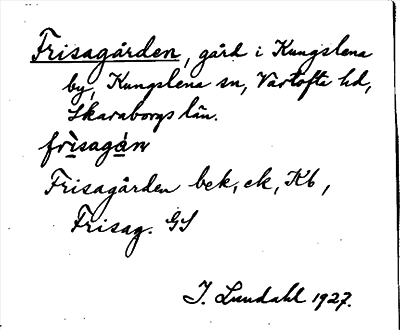 Frisagården, gård i Kungslena
by, Kungslena sn, Vartofta hd,
Skaraborgs län.
frìsagàn
Frisagården bek, ek, Kb,
Frisag. GS
I. Lundahl 1927.